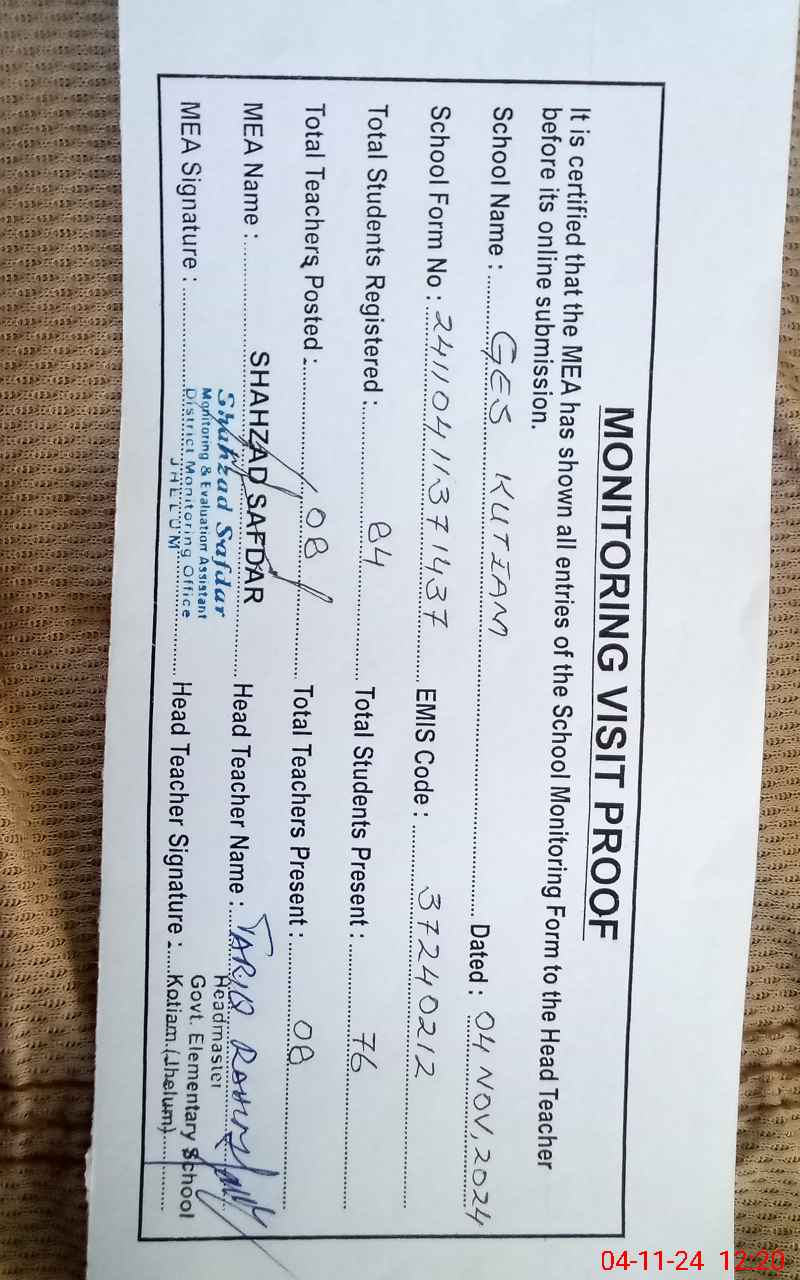 MONITORING VISIT PROOF
It is certified that the MEA has shown all entries of the School Monitoring Form to the Head Teacher
before its online submission.
School Name : GES KUTIAM Dated : 04 NOV, 2024
School Form No : 24110411371437 EMIS Code : 37240212
Total Students Registered : 84 Total Students Present : 76
Total Teachers Posted : 08 Total Teachers Present : 08
MEA Name : SHAHZAD SAFDAR Head Teacher Name : TARIQ
MEA Signature : Head Teacher Signature :
Shahzad Safdar
Monitoring & Evaluation Assistant
District Monitoring Office
JHELUM
Headmaster
Govt. Elementary School
Kotiam (Jhelum)
04-11-24 12:20